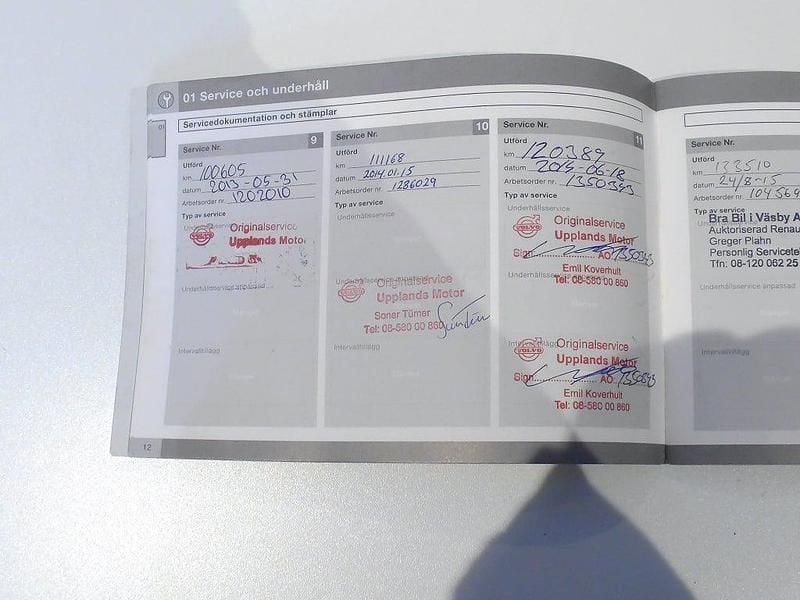 01 Service och underhåll
01
Servicedokumentation och stämplar
Service Nr. 9
Utförd
km 100605
datum 2013-05-31
Arbetsorder nr. 1202010
Typ av service
Underhållsservice
VOLVO
Originalservice
Upplands Motor
Underhållsservice anpassad
Intervalltillägg
Service Nr. 10
Utförd
km 111168
datum 2014.01.15
Arbetsorder nr. 1286029
Typ av service
Underhållsservice anpassad
VOLVO
Originalservice
Upplands Motor
Sonar Tümer
Tel: 08-580 00 860
Intervalltillägg
Service Nr. 11
Utförd
km 120389
datum 2015-06-18
Arbetsorder nr. 1350393
Typ av service
Underhållsservice
VOLVO
Originalservice
Upplands Motor
Sign AO
Emil Koverhult
Underhållsservice
Tel: 08-580 00 860
Intervalltillägg
VOLVO
Originalservice
Upplands Motor
Sign AO
Emil Koverhult
Tel: 08-580 00 860
Service Nr.
Utförd
km 133510
datum 24/8-15
Arbetsorder nr. 104569
Typ av service
Bra Bil i Väsby
Auktoriserad Renau
Greger Plahn
Personlig Servicete
Tfn: 08-120 062 25
Underhållsservice anpassad
Intervalltillägg
12